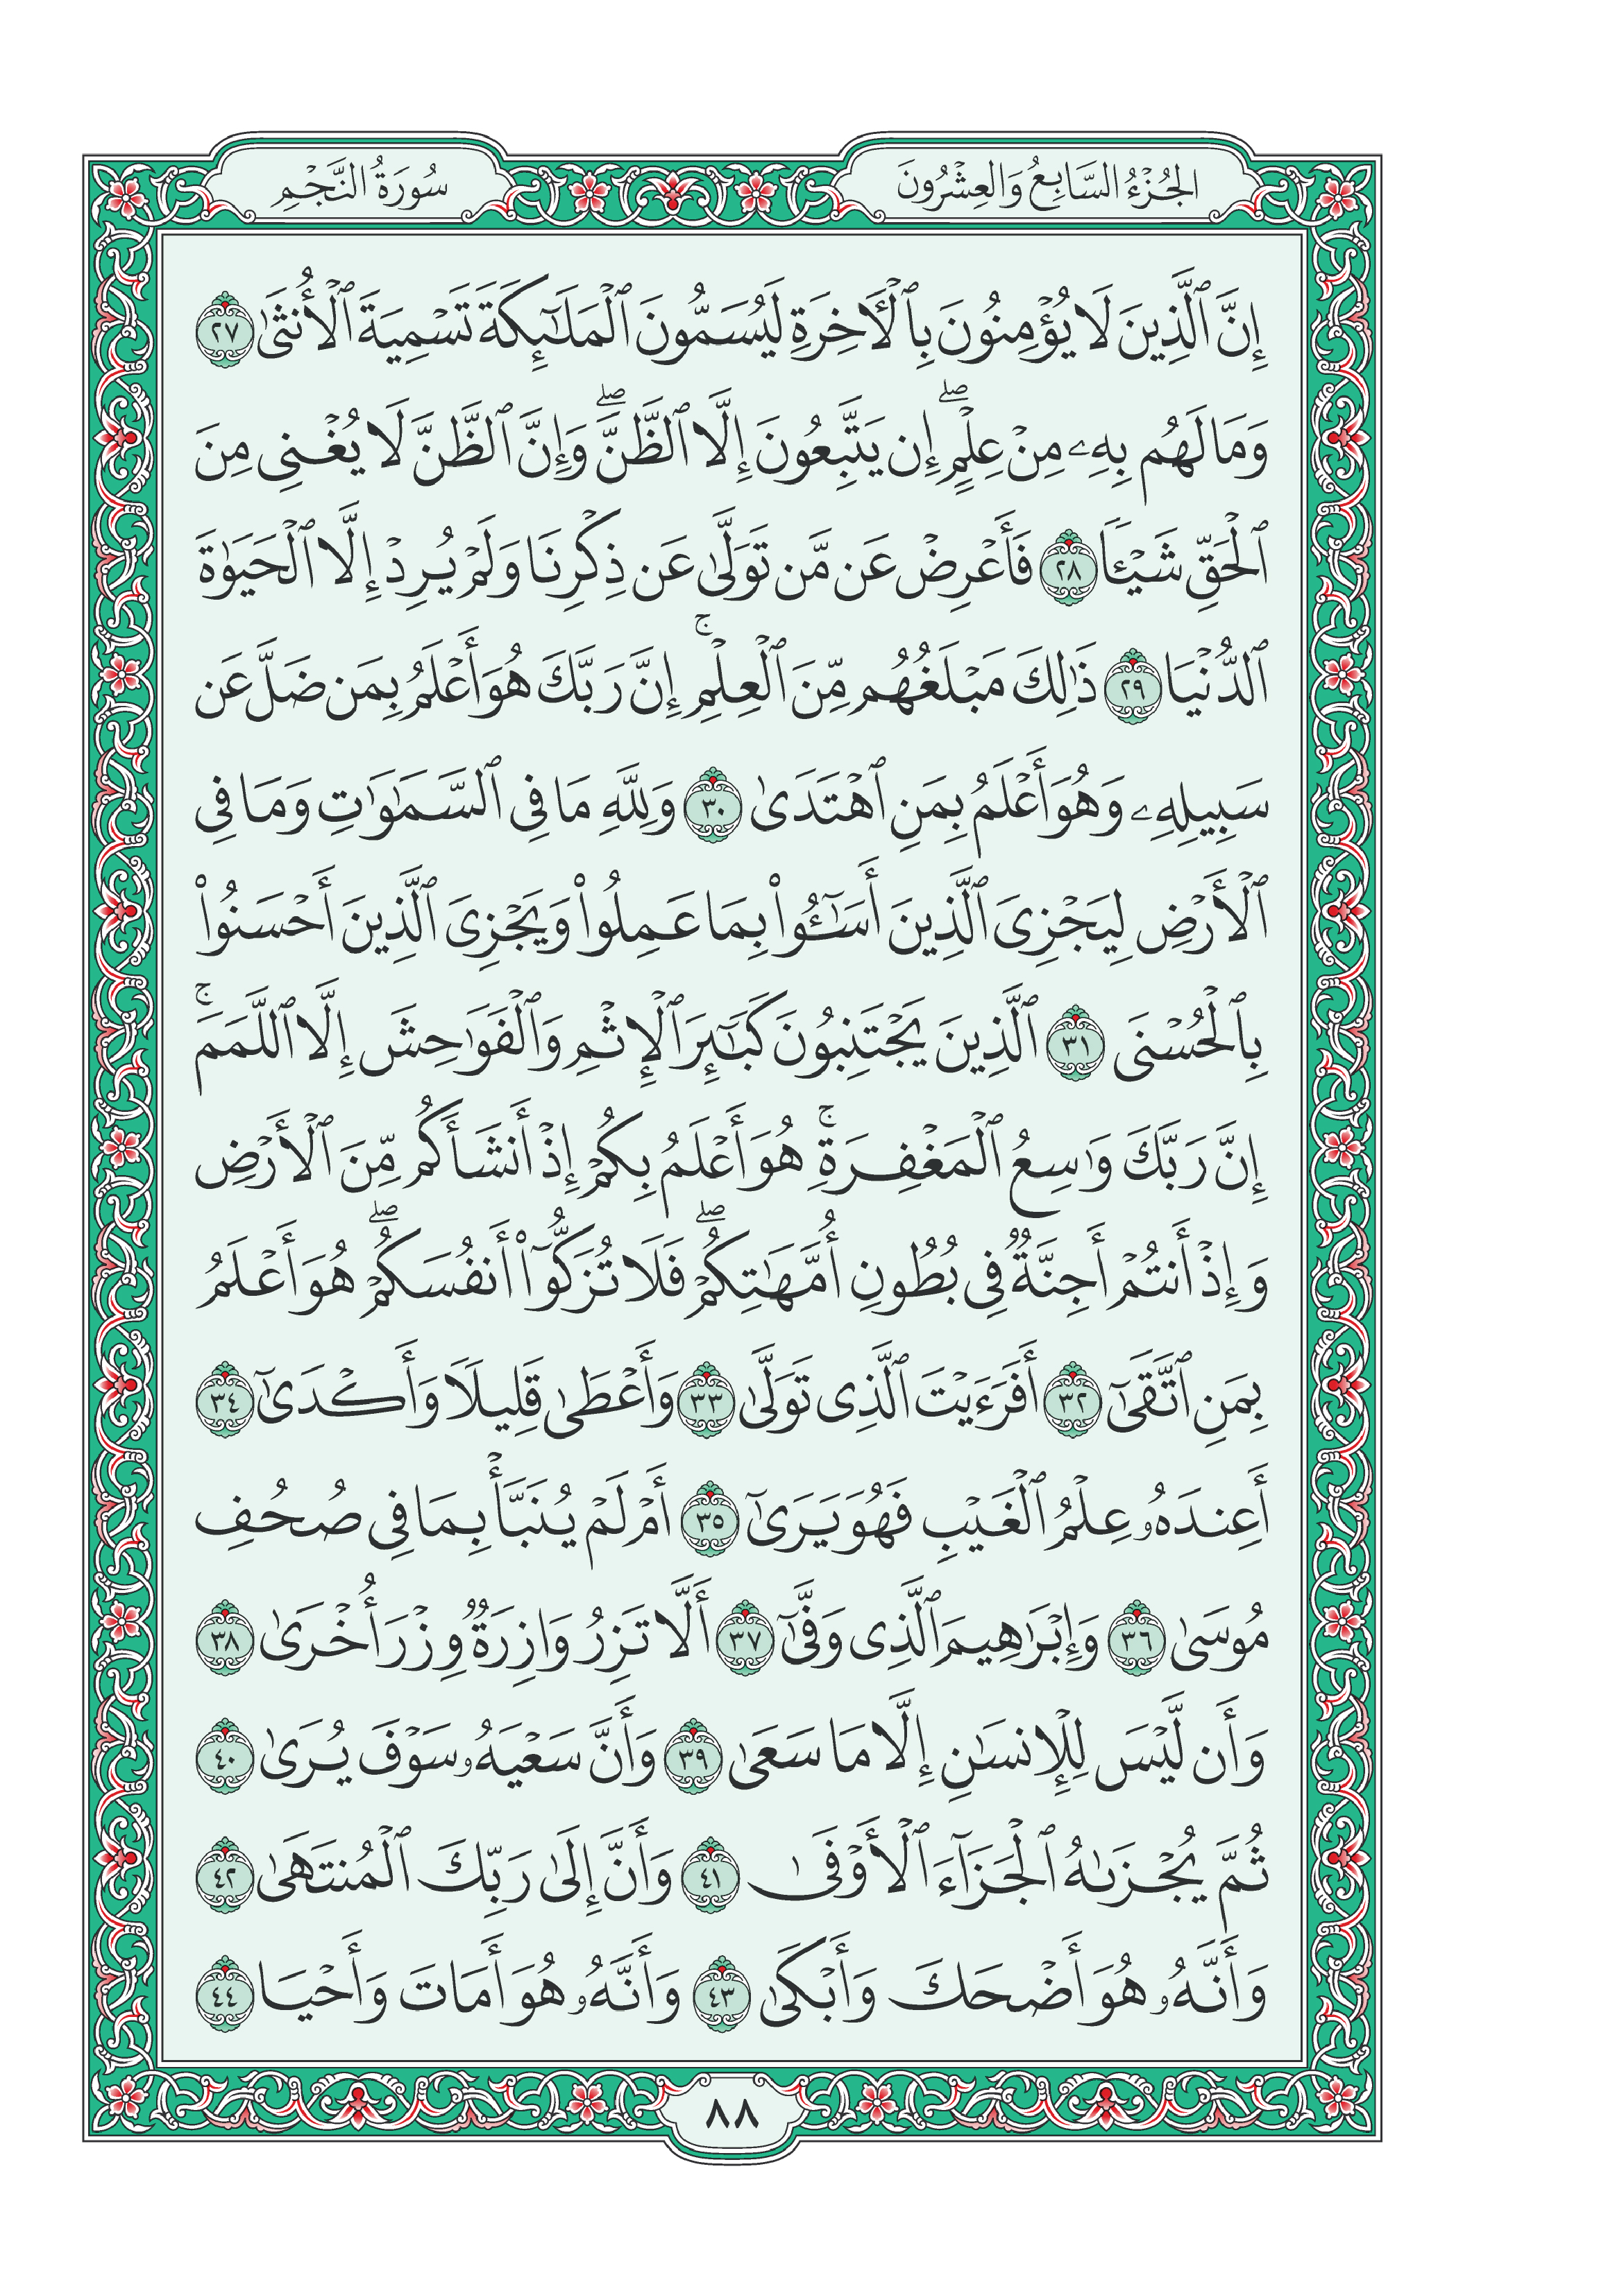 الجُزْءُ السَّابِعُ وَالعِشْرُونَ
سُورَةُ النَّجْمِ
إِنَّ ٱلَّذِينَ لَا يُؤْمِنُونَ بِٱلْأٓخِرَةِ لَيُسَمُّونَ ٱلْمَلَٰٓئِكَةَ تَسْمِيَةَ ٱلْأُنثَىٰ ٢٧
وَمَا لَهُم بِهِۦ مِنْ عِلْمٍۖ إِن يَتَّبِعُونَ إِلَّا ٱلظَّنَّۖ وَإِنَّ ٱلظَّنَّ لَا يُغْنِى مِنَ
ٱلْحَقِّ شَيْـًٔا ٢٨ فَأَعْرِضْ عَن مَّن تَوَلَّىٰ عَن ذِكْرِنَا وَلَمْ يُرِدْ إِلَّا ٱلْحَيَوٰةَ
ٱلدُّنْيَا ٢٩ ذَٰلِكَ مَبْلَغُهُم مِّنَ ٱلْعِلْمِۚ إِنَّ رَبَّكَ هُوَ أَعْلَمُ بِمَن ضَلَّ عَن
سَبِيلِهِۦ وَهُوَ أَعْلَمُ بِمَنِ ٱهْتَدَىٰ ٣٠ وَلِلَّهِ مَا فِى ٱلسَّمَٰوَٰتِ وَمَا فِى
ٱلْأَرْضِ لِيَجْزِىَ ٱلَّذِينَ أَسَٰٓـُٔوا۟ بِمَا عَمِلُوا۟ وَيَجْزِىَ ٱلَّذِينَ أَحْسَنُوا۟
بِٱلْحُسْنَى ٣١ ٱلَّذِينَ يَجْتَنِبُونَ كَبَٰٓئِرَ ٱلْإِثْمِ وَٱلْفَوَٰحِشَ إِلَّا ٱللَّمَمَۚ
إِنَّ رَبَّكَ وَٰسِعُ ٱلْمَغْفِرَةِۚ هُوَ أَعْلَمُ بِكُمْ إِذْ أَنشَأَكُم مِّنَ ٱلْأَرْضِ
وَإِذْ أَنتُمْ أَجِنَّةٌ فِى بُطُونِ أُمَّهَٰتِكُمْۖ فَلَا تُزَكُّوٓا۟ أَنفُسَكُمْۖ هُوَ أَعْلَمُ
بِمَنِ ٱتَّقَىٰٓ ٣٢ أَفَرَءَيْتَ ٱلَّذِى تَوَلَّىٰ ٣٣ وَأَعْطَىٰ قَلِيلًا وَأَكْدَىٰٓ ٣٤
أَعِندَهُۥ عِلْمُ ٱلْغَيْبِ فَهُوَ يَرَىٰٓ ٣٥ أَمْ لَمْ يُنَبَّأْ بِمَا فِى صُحُفِ
مُوسَىٰ ٣٦ وَإِبْرَٰهِيمَ ٱلَّذِى وَفَّىٰٓ ٣٧ أَلَّا تَزِرُ وَازِرَةٌ وِزْرَ أُخْرَىٰ ٣٨
وَأَن لَّيْسَ لِلْإِنسَٰنِ إِلَّا مَا سَعَىٰ ٣٩ وَأَنَّ سَعْيَهُۥ سَوْفَ يُرَىٰ ٤٠
ثُمَّ يُجْزَىٰهُ ٱلْجَزَآءَ ٱلْأَوْفَىٰ ٤١ وَأَنَّ إِلَىٰ رَبِّكَ ٱلْمُنتَهَىٰ ٤٢
وَأَنَّهُۥ هُوَ أَضْحَكَ وَأَبْكَىٰ ٤٣ وَأَنَّهُۥ هُوَ أَمَاتَ وَأَحْيَا ٤٤
٨٨